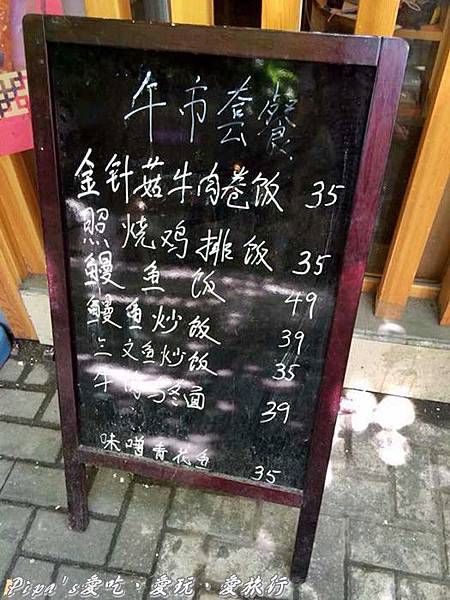 午市套餐
金针菇牛肉卷饭 35
照烧鸡排饭 35
鳗鱼饭 49
鳗鱼炒饭 39
三文鱼炒饭 35
牛肉乌冬面 39
味噌青花鱼 35
Pipa's愛吃、愛玩、愛旅行